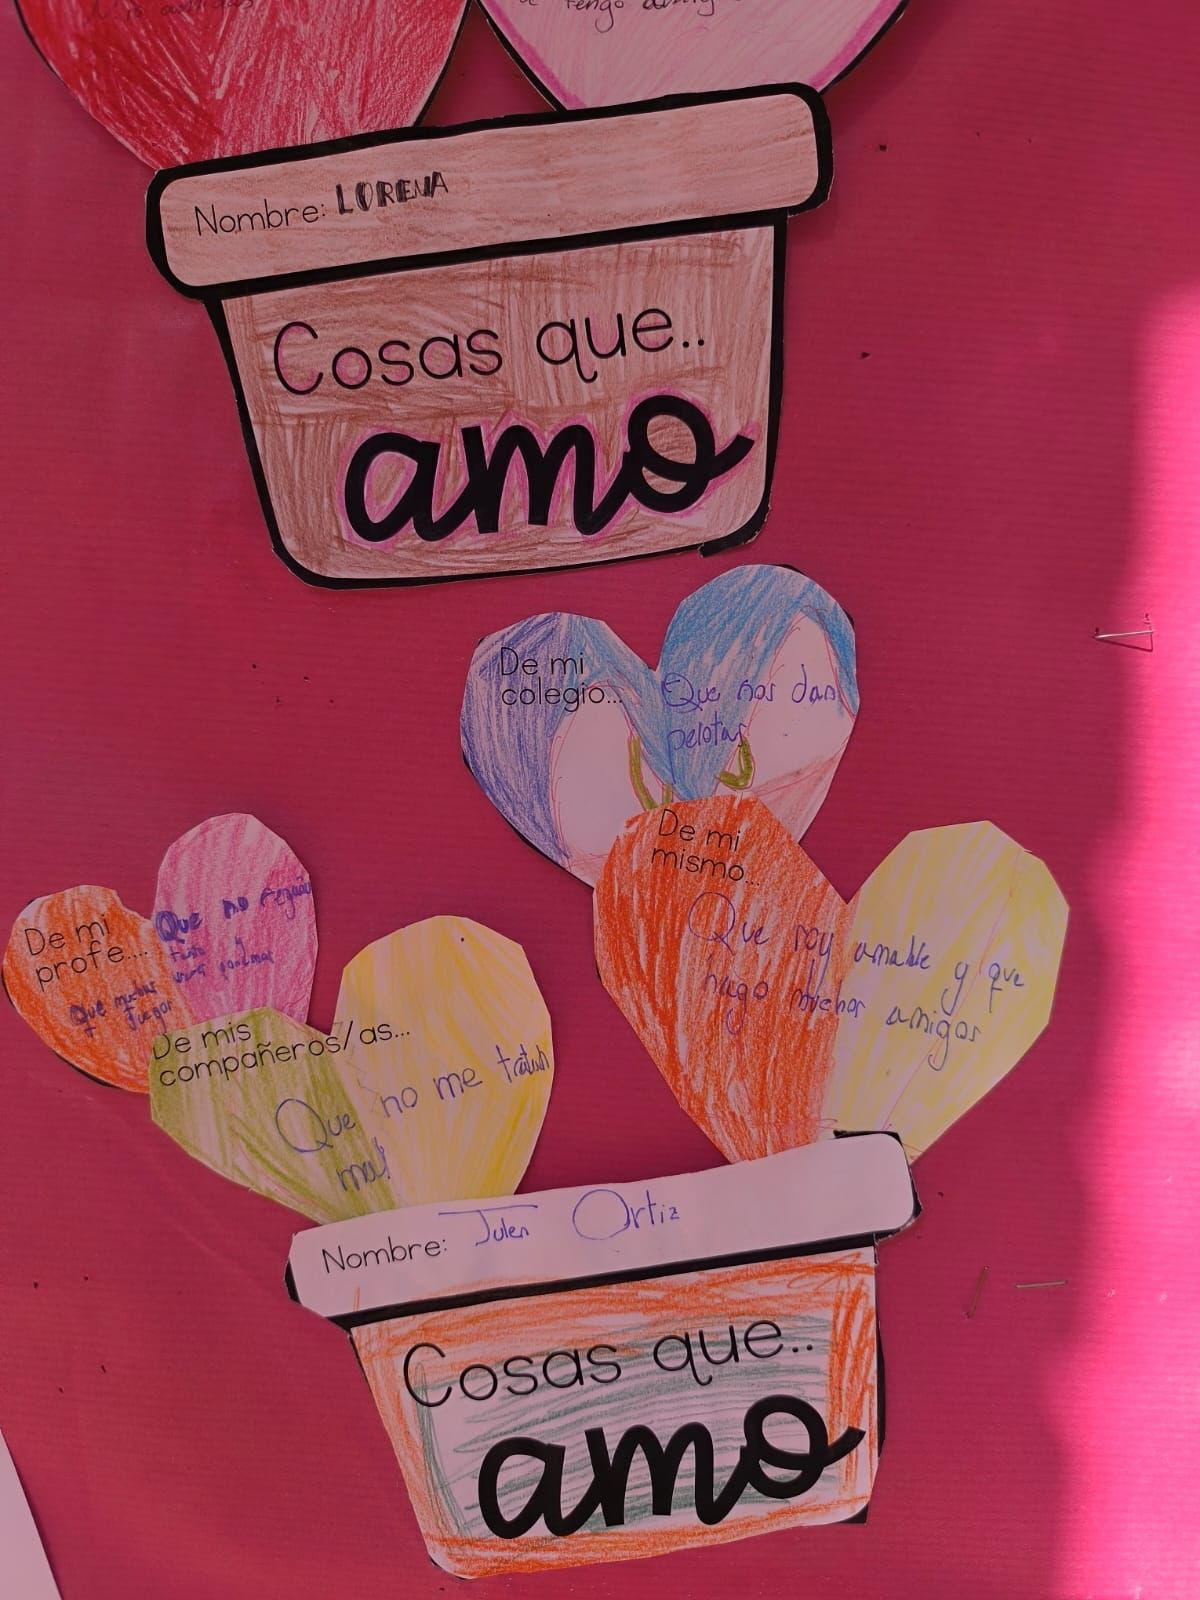 Mis amigas
tengo amig
Nombre: LORENA
Cosas que..
amo
De mi
colegio...
Que nos dan
pelotas
De mi
mismo...
Que soy amable y que
hago muchos amigos
De mi
profe....
Que muchos
juegos
Que no regaña
tanto y
De mis
compañeros/as...
Que no me tratan
mal
Nombre: Julen Ortiz
Cosas que..
amo